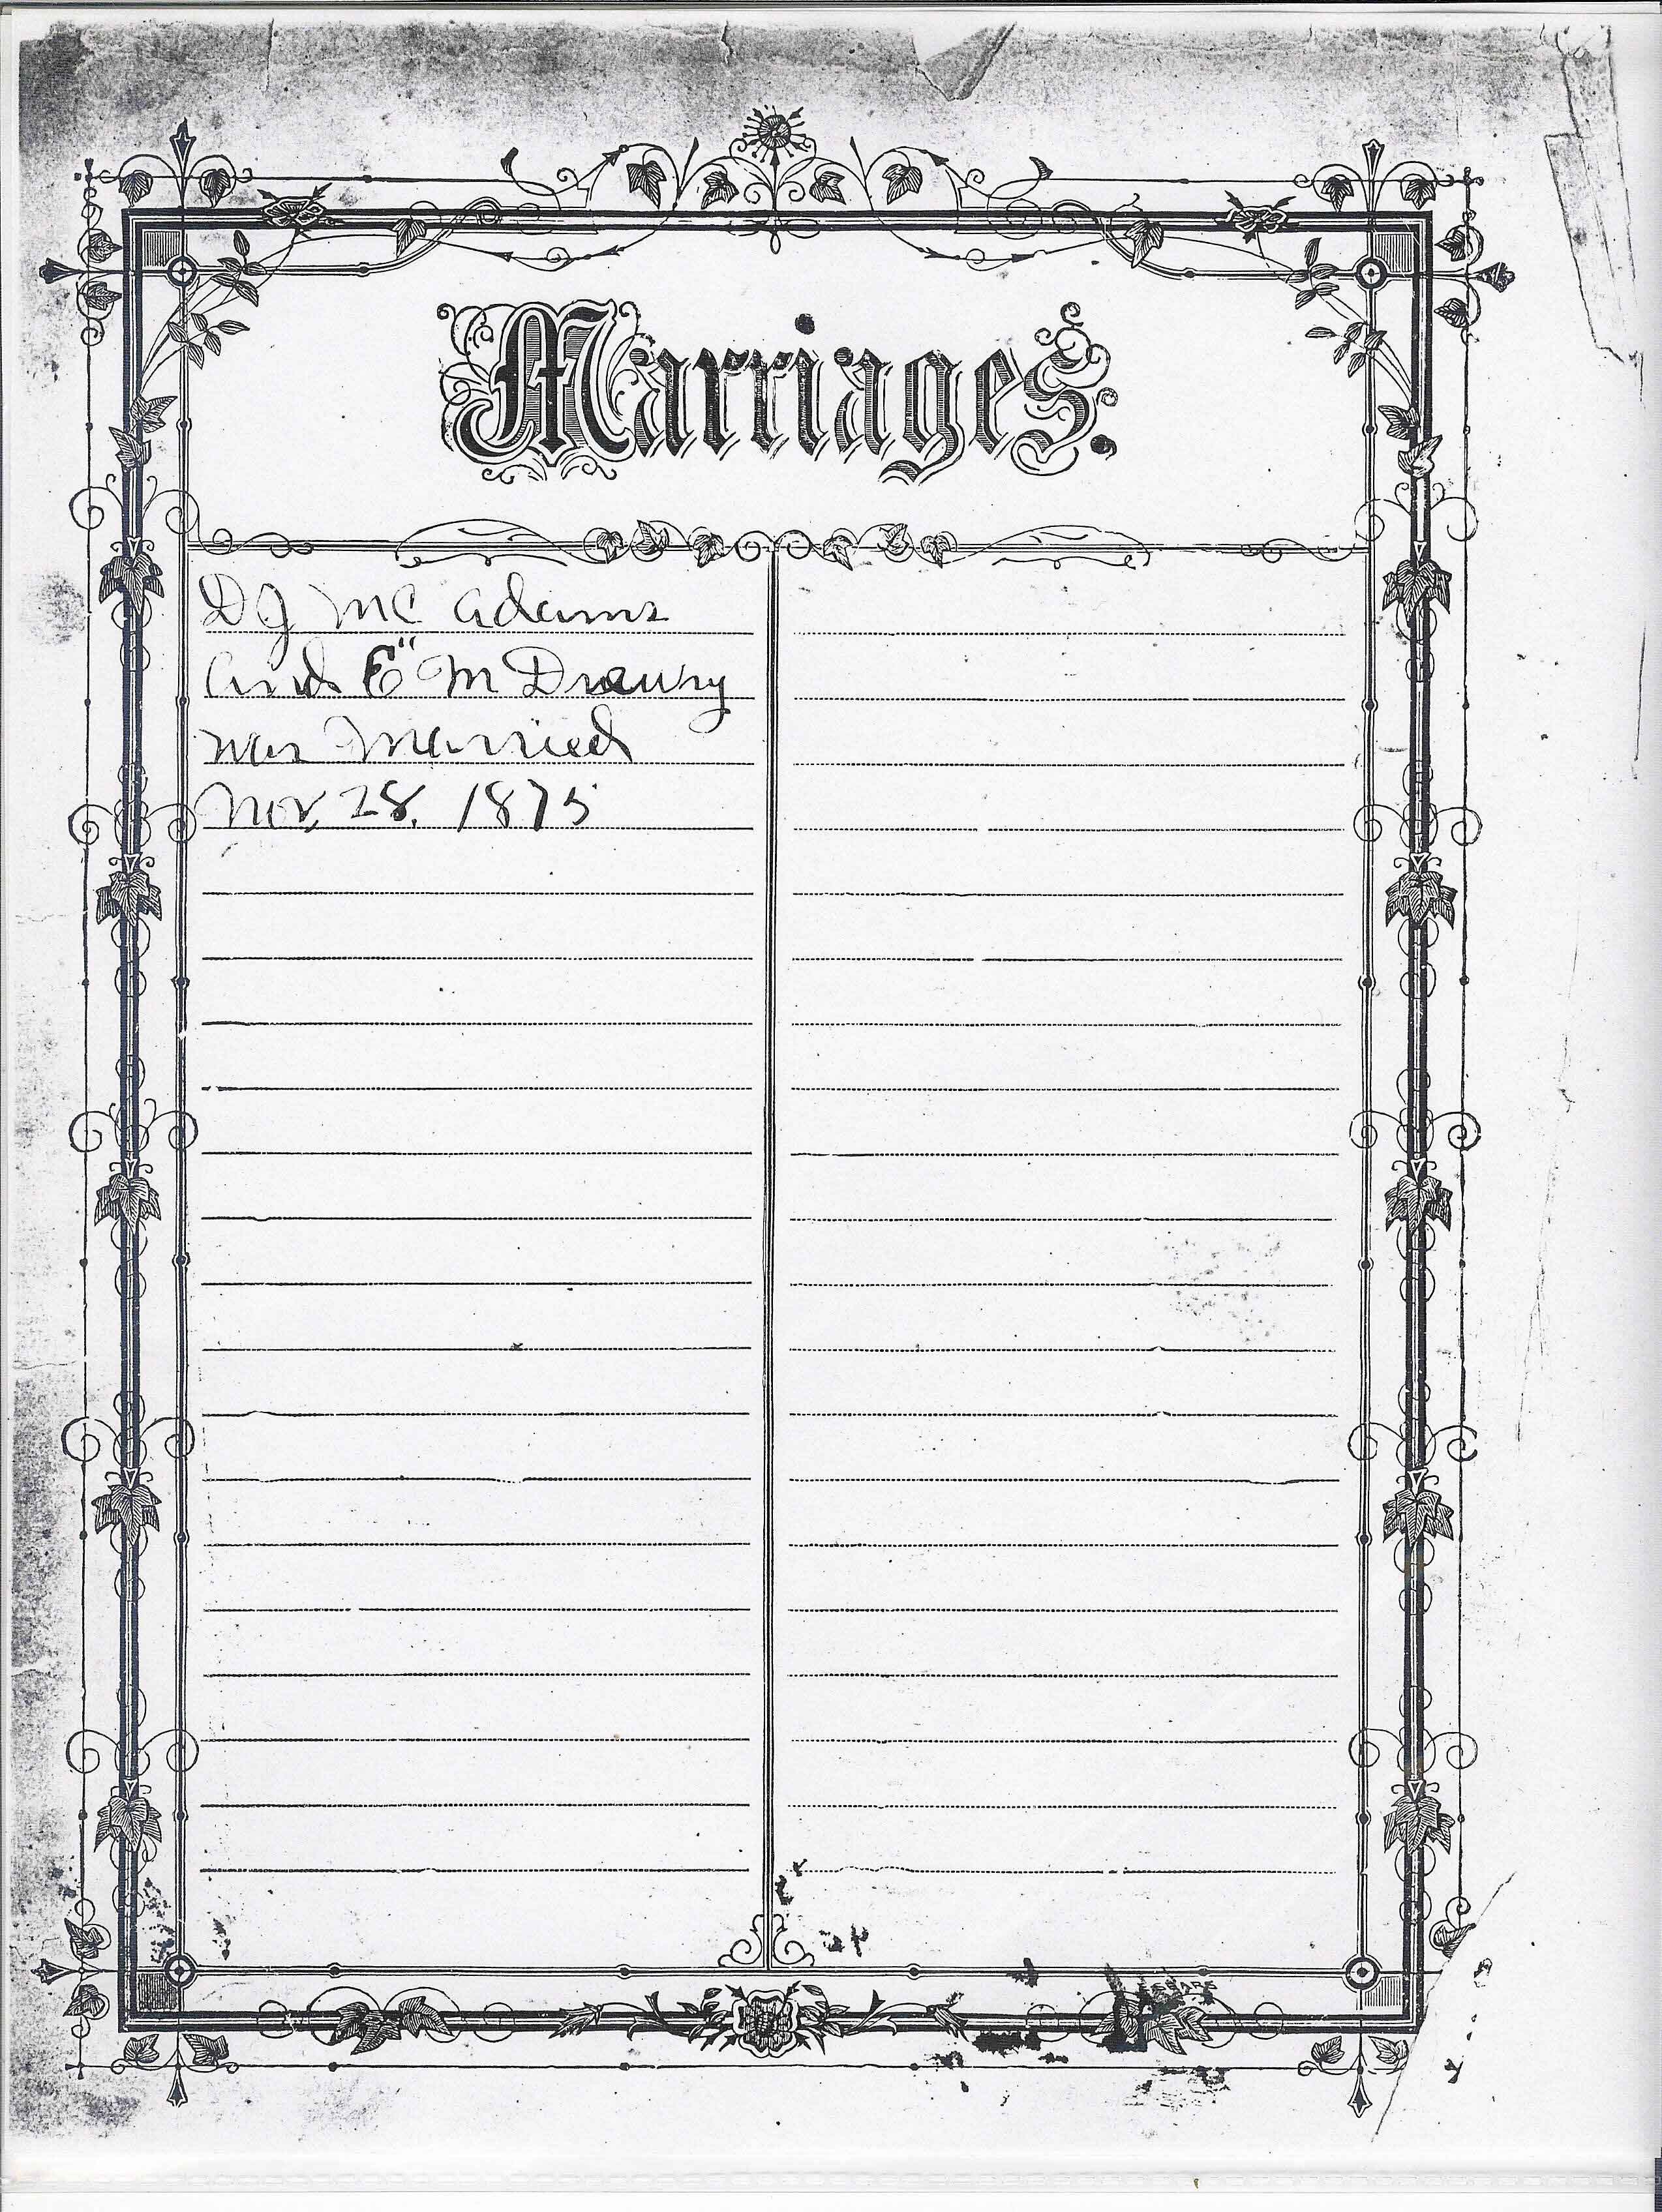 Marriages.
D J Mc Adams
and E" M Drewry
was Married
Nov, 28. 1875